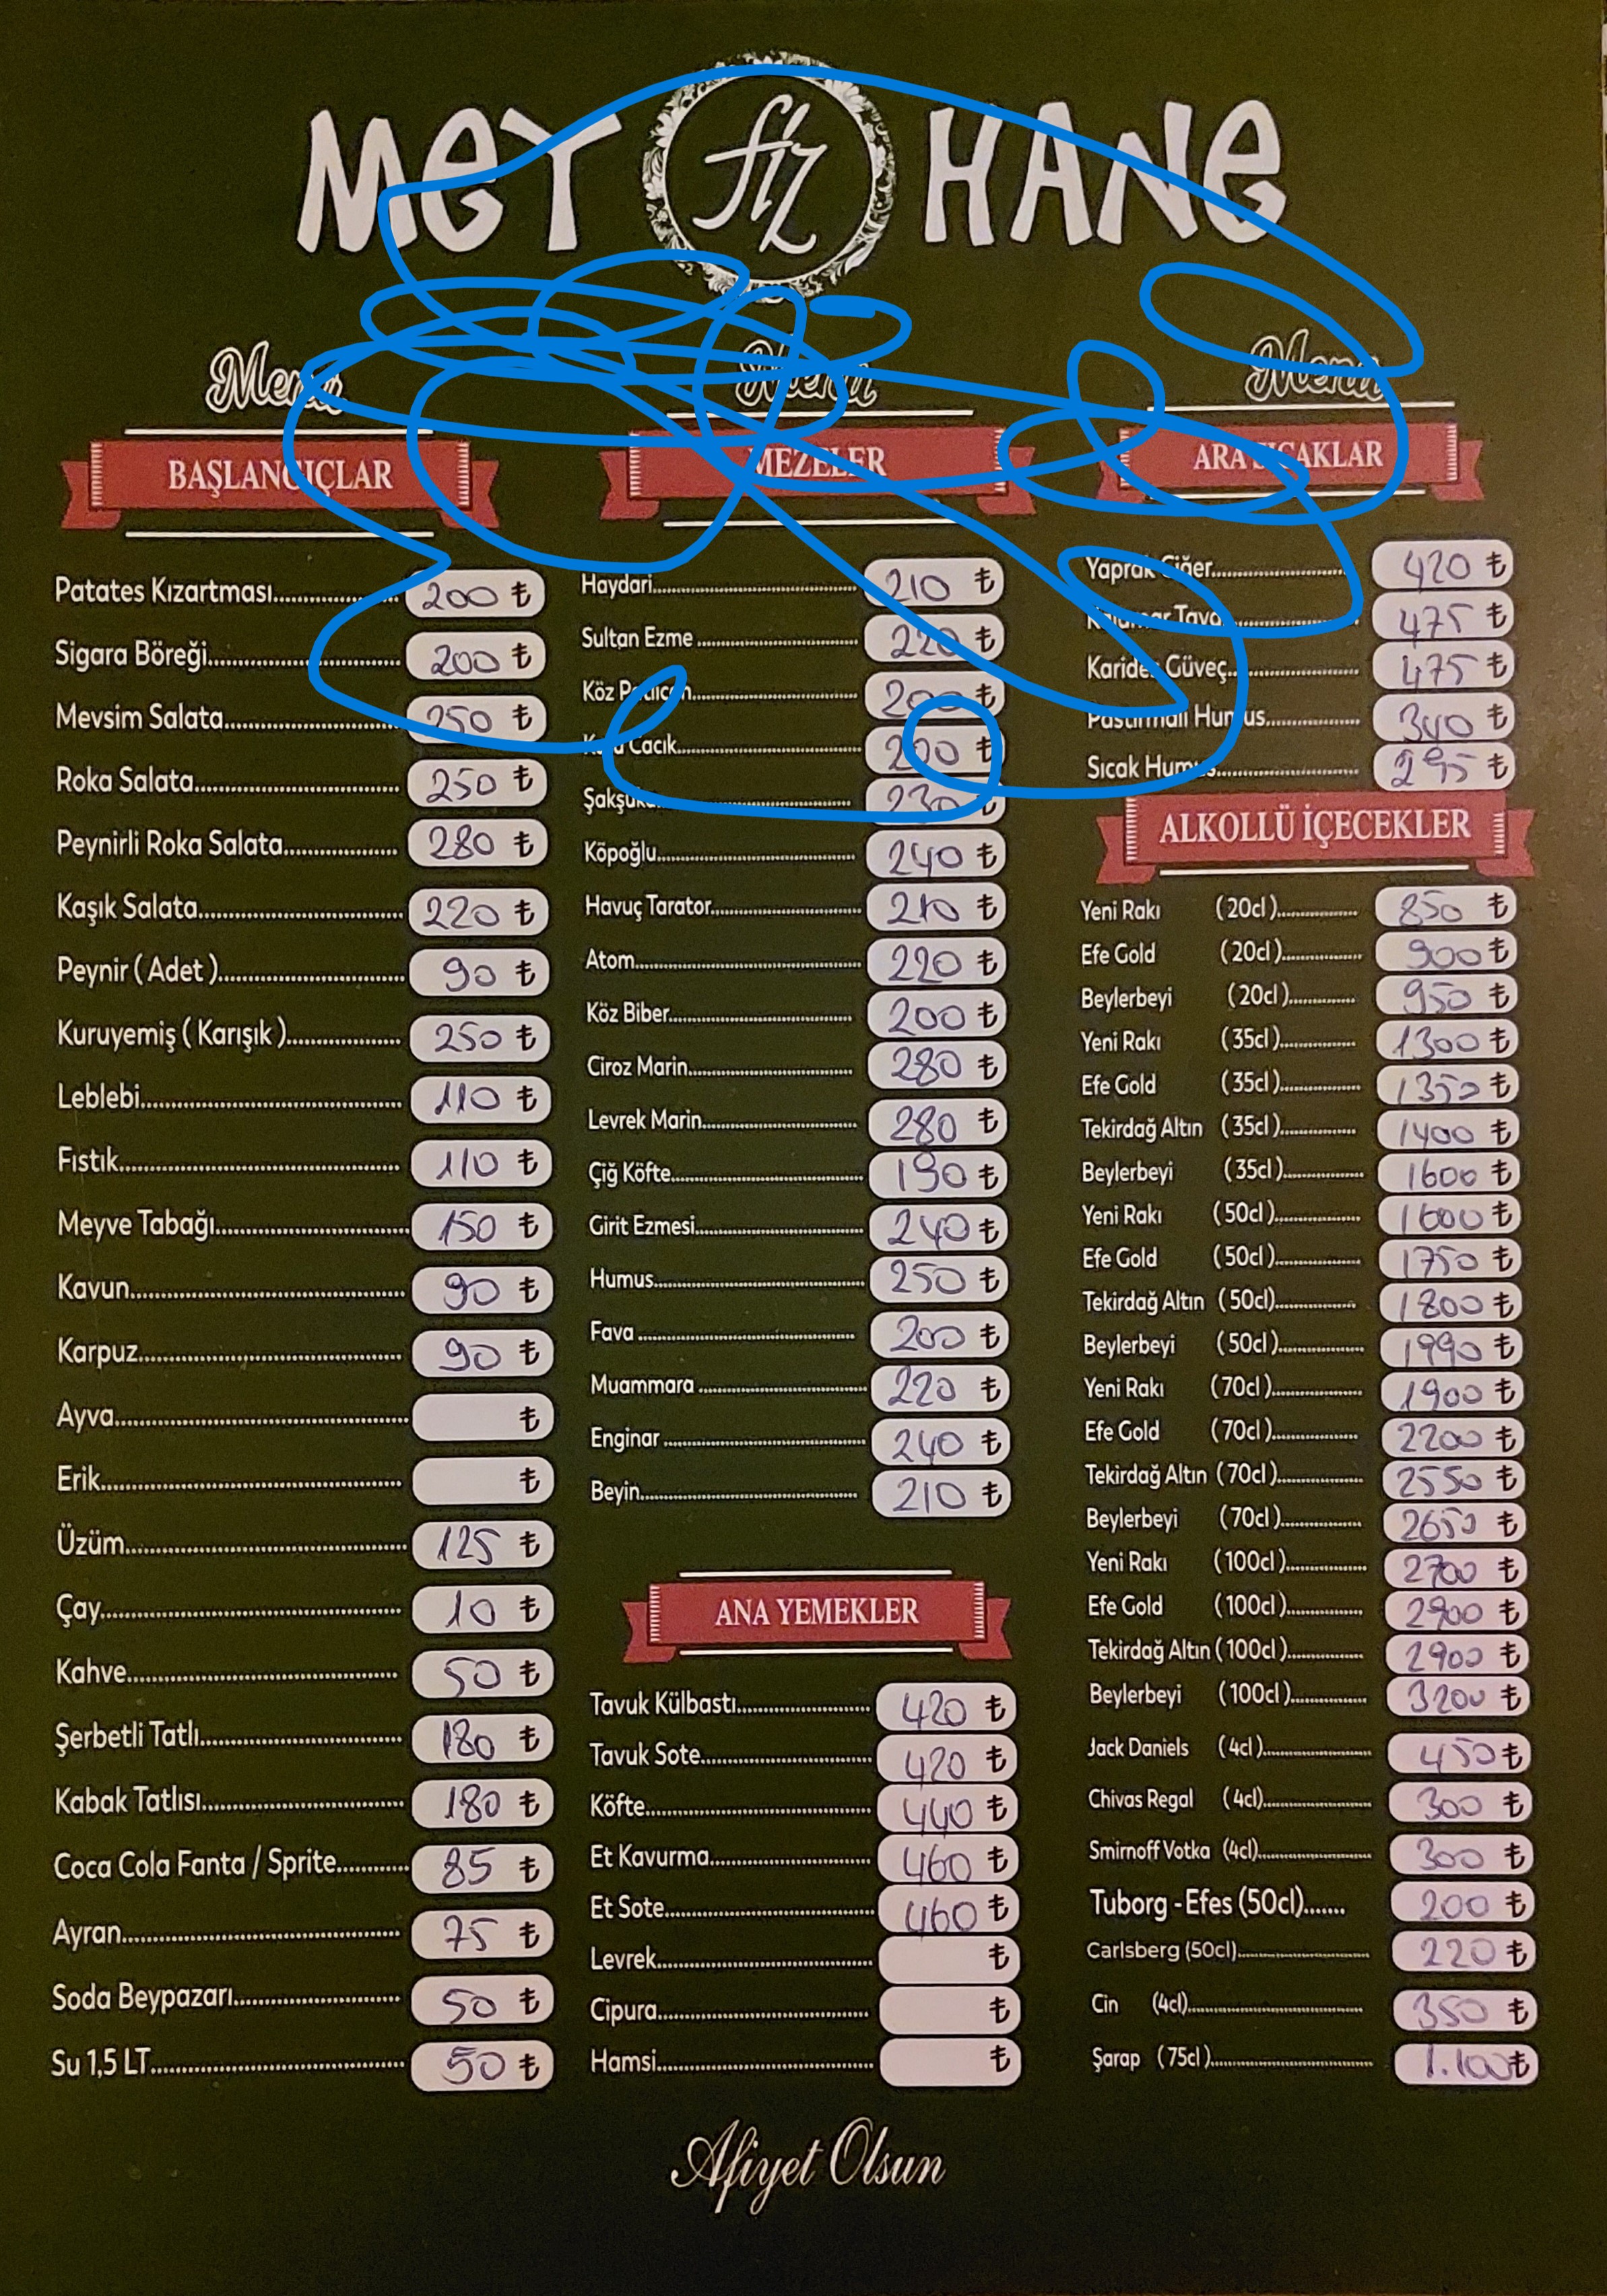 MEYHANE
fiz
Menü
BAŞLANGIÇLAR
Patates Kızartması 200 ₺
Sigara Böreği 200 ₺
Mevsim Salata 250 ₺
Roka Salata 250 ₺
Peynirli Roka Salata 280 ₺
Kaşık Salata 220 ₺
Peynir ( Adet ) 90 ₺
Kuruyemiş ( Karışık ) 250 ₺
Leblebi 110 ₺
Fıstık 110 ₺
Meyve Tabağı 150 ₺
Kavun 90 ₺
Karpuz 90 ₺
Ayva ₺
Erik ₺
Üzüm 125 ₺
Çay 10 ₺
Kahve 50 ₺
Şerbetli Tatlı 180 ₺
Kabak Tatlısı 180 ₺
Coca Cola Fanta / Sprite 85 ₺
Ayran 75 ₺
Soda Beypazarı 50 ₺
Su 1,5 LT 50 ₺
Menü
MEZELER
Haydari 210 ₺
Sultan Ezme 220 ₺
Köz Patlıcan 200 ₺
Kuru Cacık 200 ₺
Şakşuka 230 ₺
Köpoğlu 240 ₺
Havuç Tarator 210 ₺
Atom 220 ₺
Köz Biber 200 ₺
Ciroz Marin 280 ₺
Levrek Marin 280 ₺
Çiğ Köfte 190 ₺
Girit Ezmesi 240 ₺
Humus 250 ₺
Fava 200 ₺
Muammara 220 ₺
Enginar 240 ₺
Beyin 210 ₺
ANA YEMEKLER
Tavuk Külbastı 420 ₺
Tavuk Sote 420 ₺
Köfte 440 ₺
Et Kavurma 460 ₺
Et Sote 460 ₺
Levrek ₺
Cipura ₺
Hamsi ₺
Menü
ARA SICAKLAR
Yaprak Ciğer 420 ₺
Kalamar Tava 475 ₺
Karides Güveç 475 ₺
Pastırmalı Humus 340 ₺
Sıcak Humus 295 ₺
ALKOLLÜ İÇECEKLER
Yeni Rakı (20cl) 850 ₺
Efe Gold (20cl) 900 ₺
Beylerbeyi (20cl) 950 ₺
Yeni Rakı (35cl) 1300 ₺
Efe Gold (35cl) 1350 ₺
Tekirdağ Altın (35cl) 1400 ₺
Beylerbeyi (35cl) 1600 ₺
Yeni Rakı (50cl) 1600 ₺
Efe Gold (50cl) 1750 ₺
Tekirdağ Altın (50cl) 1800 ₺
Beylerbeyi (50cl) 1990 ₺
Yeni Rakı (70cl) 1900 ₺
Efe Gold (70cl) 2200 ₺
Tekirdağ Altın (70cl) 2550 ₺
Beylerbeyi (70cl) 2650 ₺
Yeni Rakı (100cl) 2700 ₺
Efe Gold (100cl) 2900 ₺
Tekirdağ Altın (100cl) 2900 ₺
Beylerbeyi (100cl) 3200 ₺
Jack Daniels (4cl) 450 ₺
Chivas Regal (4cl) 300 ₺
Smirnoff Votka (4cl) 300 ₺
Tuborg - Efes (50cl) 200 ₺
Carlsberg (50cl) 220 ₺
Cin (4cl) 350 ₺
Şarap (75cl) 1.100 ₺
Afiyet Olsun